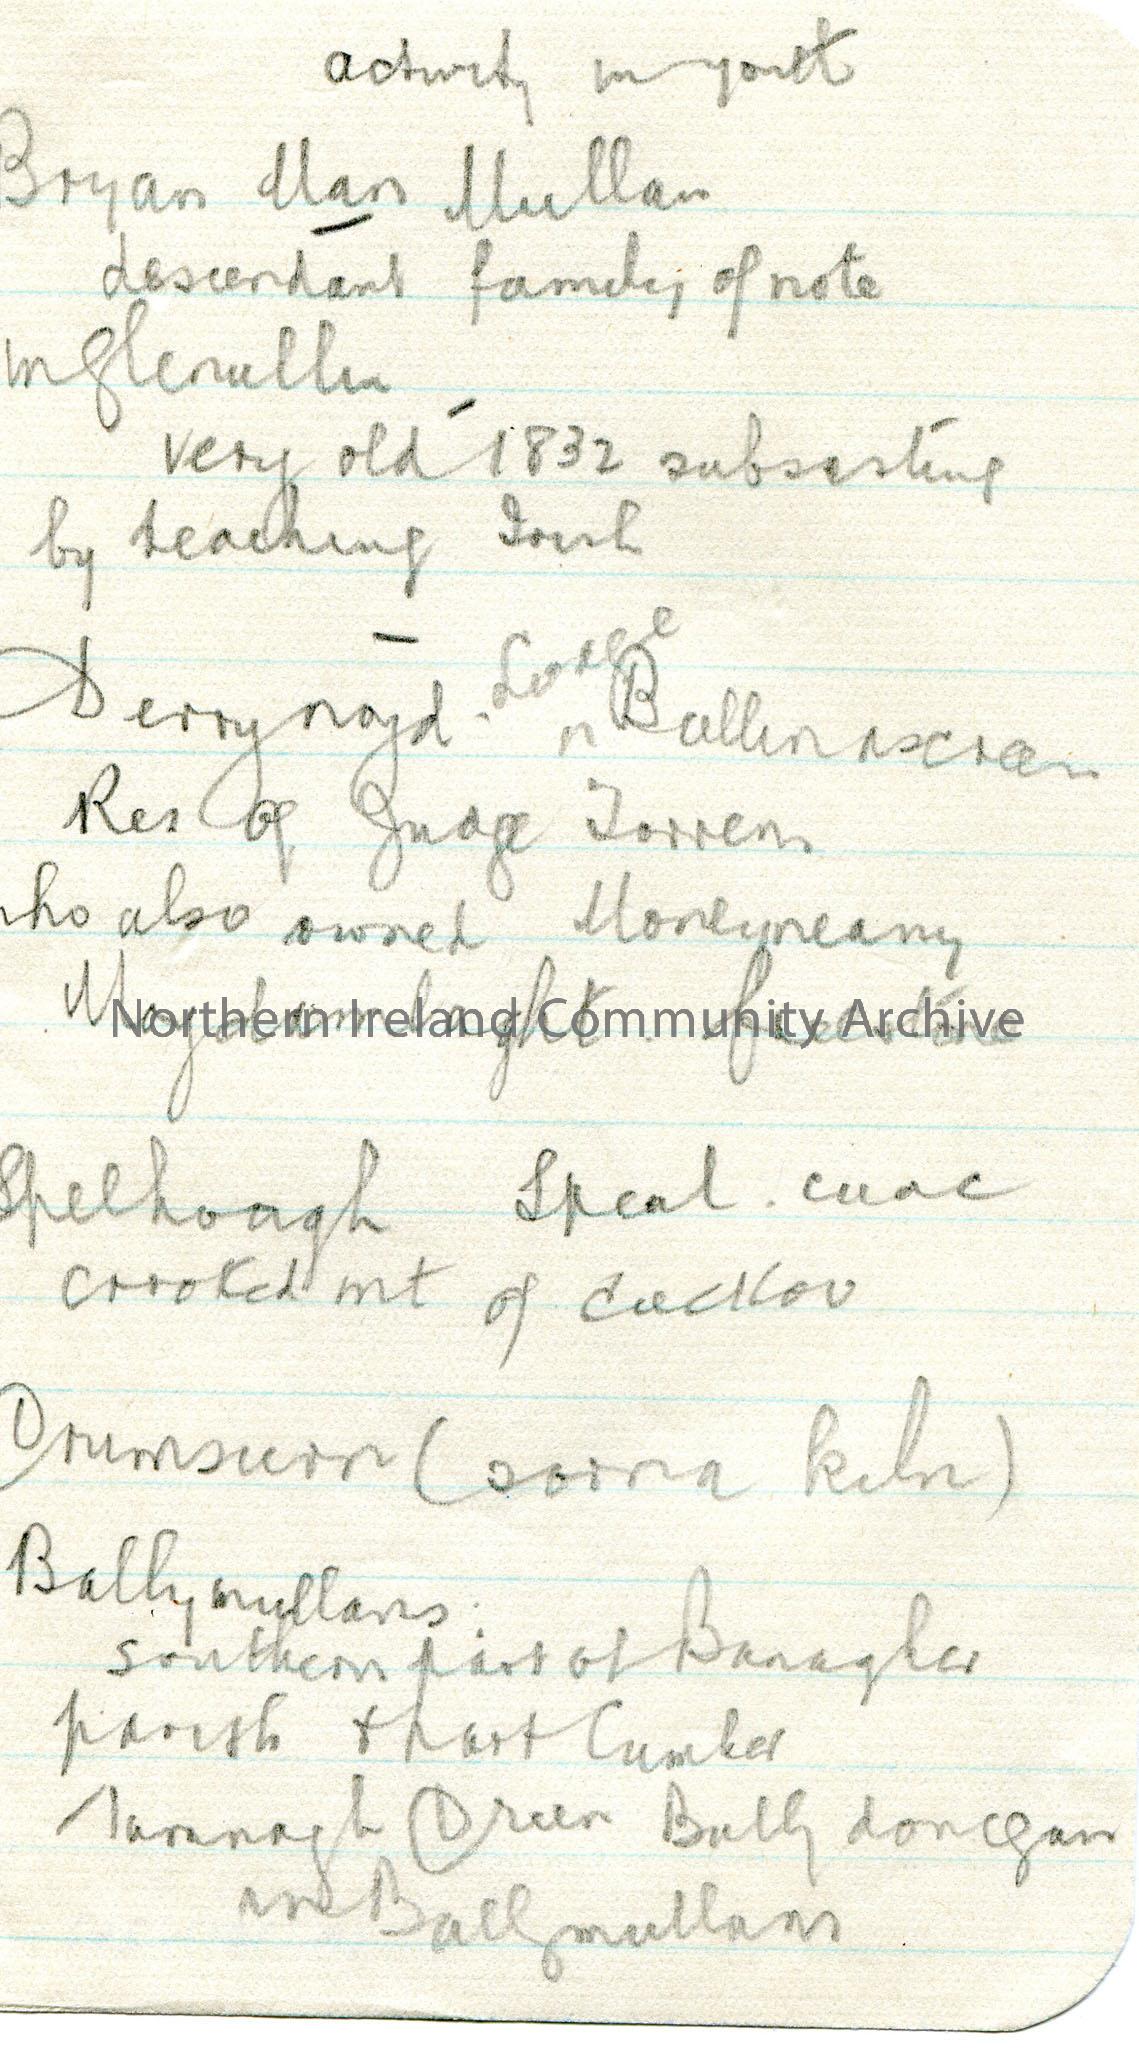 activity in youth
Bryan Mac Mullan
descendant family of note
in Glenullin
very old 1832 subsisting
by teaching Irish
Derrynoyd. Lodge
in Ballinascreen
Res of Judge Torrens
who also owned Moneyneany
Northern Ireland Community Archive
Spelhoagh Speal. cuac
crooked mt of cuckoo
Drumsurn (sorna kiln)
Ballymullans.
southern part of Banagher
parish & part Cumber
Tavanagh Dreen Ballydonegan
in Ballymullans